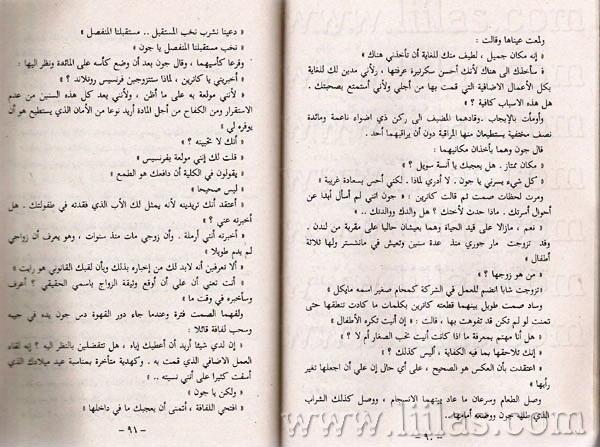 ولمعت عيناها وقالت :
« إنه مكان جميل ، لطيف منك للغاية أن تأخذني هناك »
« سآخذك الى هناك لأنك أحسن سكرتيرة عرفتها ، ولأني مدين لك للغاية
بكل الأعمال الاضافية التي قمت بها من أجلي ولأني أستمتع بصحبتك .
هل هذه الاسباب كافية ؟ »
وأومأت بالإيجاب .. وقادهما المضيف الى ركن ذي أضواء ناعمة ومائدة
نصف مختفية يستطيعان منها المراقبة دون أن يراقبهما أحد .
قال جون وهما يأخذان مكانيهما :
« مكان ممتاز . هل يعجبك يا آنسة سويل ؟ »
« كل شيء يسرني يا جون . لا أدري لماذا . لكني أحس بسعادة غريبة »
ومرت لحظات صمت ثم قالت كاترين : « جون انني لم أسأل أبدا عن
أحوال أسرتك . ماذا حدث لأختك ؟ هل والدك ووالدتك .. »
« نعم ، مازالا على قيد الحياة وهما يعيشان حاليا على مقربة من لندن .
وقد تزوجت مارجوري منذ عدة سنين وتعيش في مانشستر ولها ثلاثة
أطفال »
« من هو زوجها ؟ »
« تزوجت شابا انضم للعمل في الشركة كمحام صغير اسمه مايكل »
وساد صمت طويل بينهما قطعته كاترين بكلمات ما كادت تنطقها حتى
تمنت لو لم تكن قد تفوهت بها ، قالت : « إن أنيت تكره الأطفال »
« هل أنا مهتم بمعرفة ما اذا كانت أنيت تحب الصغار أم لا ؟ »
« إنك تلاحقها بما فيه الكفاية ، أليس كذلك ؟ »
« اعتقدت بأن العكس هو الصحيح ، على أي حال إن على أن اجعلها تغير
رأيها »
وصل الطعام وسرعان ما عاد بينهما الانسجام ، ووصل كذلك الشراب
الذي طلبه جون ووضعه أمامها ..
- ٩٠ -
« دعينا نشرب نخب المستقبل .. مستقبلنا المنفصل »
« نخب مستقبلنا المنفصل يا جون »
وقرعا كأسيهما ، وقال جون بعد أن وضع كأسه على المائدة ونظر اليها :
« أخبريني يا كاترين ، لماذا ستتزوجين فرنسيس رونلاند ؟ »
« لأنني مولعة به على ما أظن ، ولأنني بعد كل هذه السنين من عدم
الاستقرار ومن الكفاح من أجل المادة أريد نوعا من الأمان الذي يستطيع هو أن
يوفره لي »
« أنك لا تحبينه ؟ »
« قلت لك إنني مولعة بفرنسيس »
« يقولون في الكلية أن دافعك هو الطمع »
« ليس صحيحا »
« أعتقد أنك تريدينه لأنه يمثل لك الأب الذي فقدته في طفولتك . هل
أخبرته عني ؟ »
« أخبرته أنني أرملة . وأن زوجي مات منذ سنوات ، وهو يعرف أن زواجي
لم يدم طويلا »
« ألا تعرفين أنه لابد لك من إخباره بذلك وبأن لقبك القانوني هو رايت »
« أنت تعني أن على أن أوقع وثيقة الزواج باسمي الحقيقي ؟ أعرف
وسأخبره في وقت ما »
ولفهما الصمت فترة وعندما جاء دور القهوة دس جون يده في جيبه
وسحب لفافة قائلا :
« إن لدي شيئا أريد أن أعطيك إياه ، هل تتفضلين بالنظر اليه ؟ إنه لقاء
العمل الاضافي الذي قمت به . وكهدية متأخرة بمناسبة عيد ميلادك الذي
أسفت كثيرا على أنني نسيته .. »
« ولكن يا جون »
« افتحي اللفافة ، أتمنى أن يعجبك ما في داخلها »
- ٩١ -
www.liilas.com
www.liilas.com